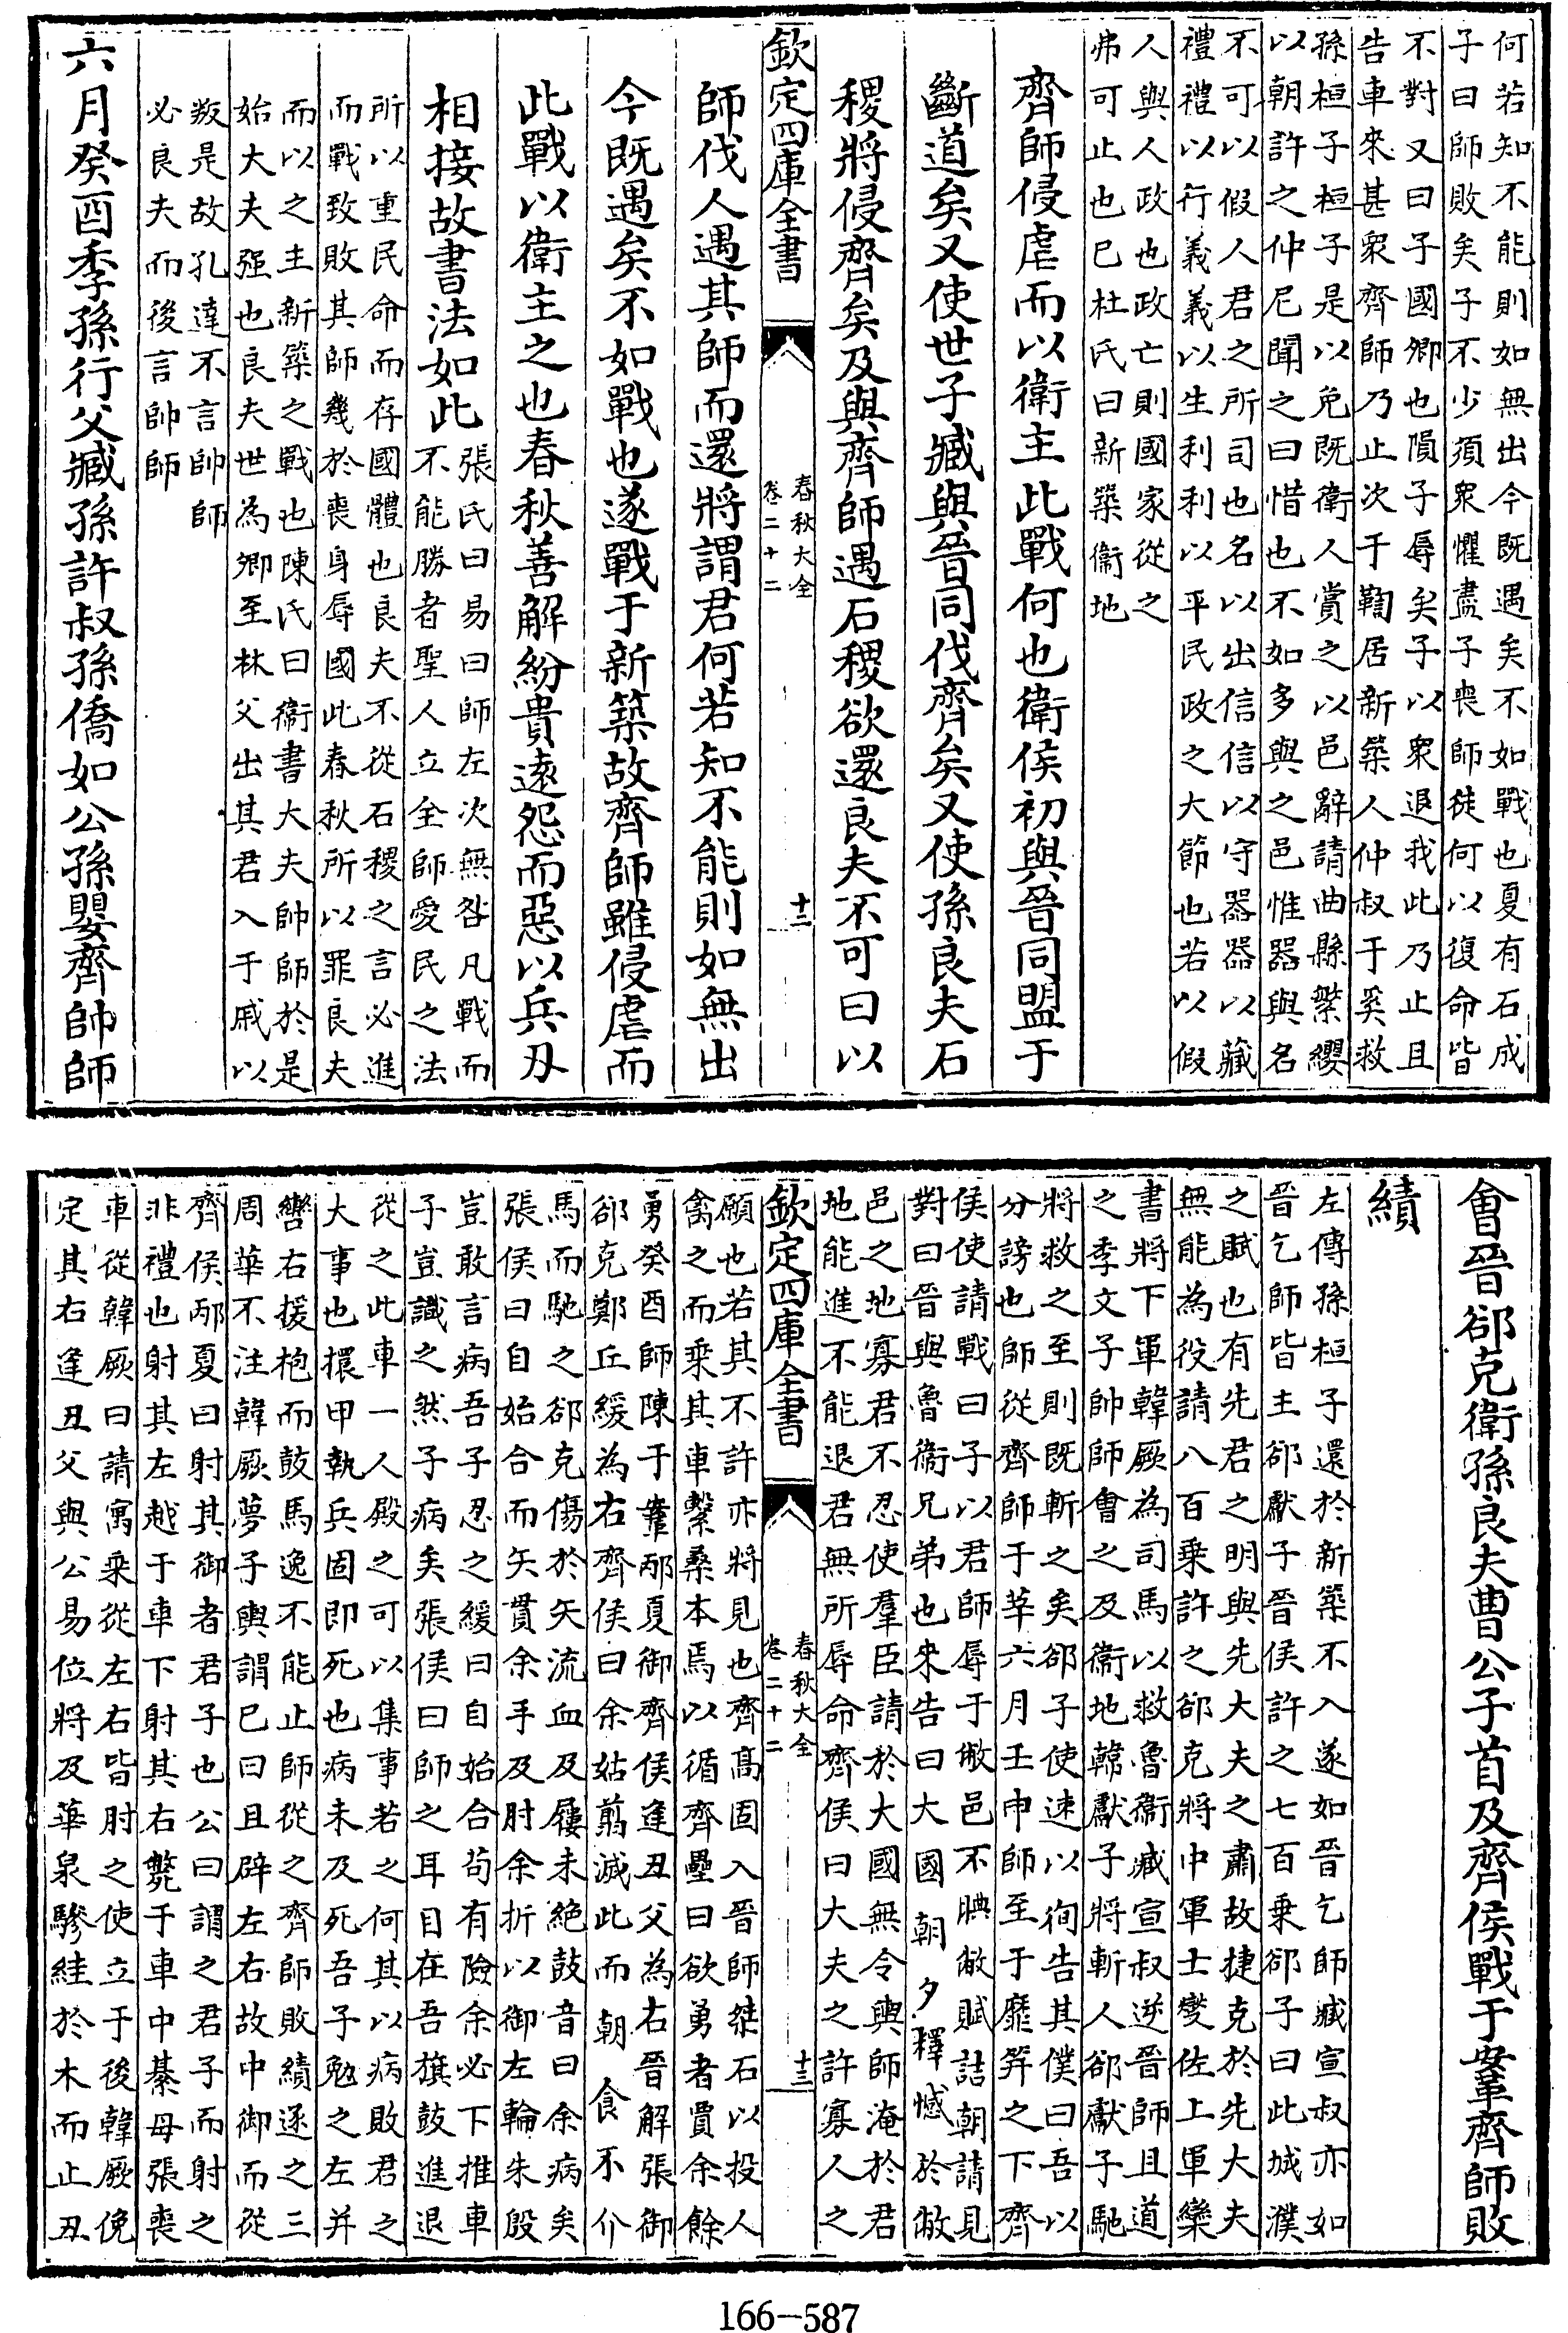 何若知不能則如無出今既遇矣不如戰也夏有石成
子曰師敗矣子不少須衆懼盡子喪師徒何以復命皆
不對又曰子國卿也隕子辱矣子以衆退我此乃止且
告車來甚衆齊師乃止次于鞫居新築人仲叔于奚救
孫桓子桓子是以免既衛人賞之以邑辭請曲縣縏纓
以朝許之仲尼聞之曰惜也不如多與之邑惟器與名
不可以假人君之所司也名以出信信以守器器以藏
禮禮以行義義以生利利以平民政之大節也若以假
人與人政也政亡則國家從之
弗可止也巳杜氏曰新築衞地
齊師侵虐而以衛主此戰何也衛侯初與晉同盟于
斷道矣又使世子臧與晉同伐齊矣又使孫良夫石
稷將侵齊矣及與齊師遇石稷欲還良夫不可曰以
欽定四庫全書
春秋大全
卷二十二
十二
師伐人遇其師而還將謂君何若知不能則如無出
今既遇矣不如戰也遂戰于新築故齊師雖侵虐而
此戰以衛主之也春秋善解紛貴遠怨而惡以兵刃
相接故書法如此
張氏曰易曰師左次無咎凡戰而
不能勝者聖人立全師愛民之法
所以重民命而存國體也良夫不從石稷之言必進
而戰致敗其師幾於喪身辱國此春秋所以罪良夫
而以之主新築之戰也陳氏曰衞書大夫帥師於是
始大夫强也良夫世為卿至林父出其君入于戚以
叛是故孔達不言帥師
必良夫而後言帥師
六月癸酉季孫行父臧孫許叔孫僑如公孫嬰齊帥師
會晉郤克衛孫良夫曹公子首及齊侯戰于鞌齊師敗
績
左傳孫桓子還於新築不入遂如晉乞師臧宣叔亦如
晉乞師皆主郤獻子晉侯許之七百乗郤子曰此城濮
之賦也有先君之明與先大夫之肅故捷克於先大夫
無能為役請八百乗許之郤克將中軍士燮佐上軍欒
書將下軍韓厥為司馬以救魯衞臧宣叔逆晉師且道
之季文子帥師會之及衞地韓獻子將斬人郤獻子馳
將救之至則既斬之矣郤子使速以徇告其僕曰吾以
分謗也師從齊師于莘六月壬申師至于靡笄之下齊
侯使請戰曰子以君師辱于敝邑不腆敝賦詰朝請見
對曰晉與魯衞兄弟也來告曰大國朝夕釋憾於敝
邑之地寡君不忍使羣臣請於大國無令輿師淹於君
地能進不能退君無所辱命齊侯曰大夫之許寡人之
欽定四庫全書
春秋大全
卷二十二
十三
願也若其不許亦將見也齊髙固入晉師桀石以投人
禽之而乗其車繫桑本焉以循齊壘曰欲勇者賈余餘
勇癸酉師陳于鞌邴夏御齊侯逢丑父為右晉解張御
郤克鄭丘緩為右齊侯曰余姑翦滅此而朝食不介
馬而馳之郤克傷於矢流血及屨未絶鼓音曰余病矣
張侯曰自始合而矢貫余手及肘余折以御左輪朱殷
豈敢言病吾子忍之緩曰自始合苟有險余必下推車
子豈識之然子病矣張侯曰師之耳目在吾旗鼓進退
從之此車一人殿之可以集事若之何其以病敗君之
大事也擐甲執兵固即死也病未及死吾子勉之左并
轡右援枹而鼓馬逸不能止師從之齊師敗績逐之三
周華不注韓厥夢子輿謂巳曰且辟左右故中御而從
齊侯邴夏曰射其御者君子也公曰謂之君子而射之
非禮也射其左越于車下射其右斃于車中綦毋張喪
車從韓厥曰請寓乗從左右皆肘之使立于後韓厥俛
定其右逢丑父與公易位將及華泉驂絓於木而止丑
166-587